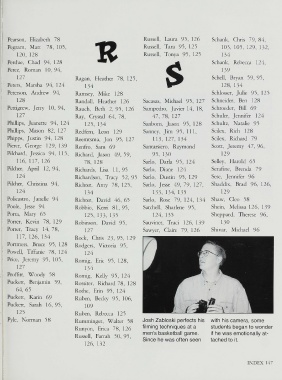 Pearson, Elizabeth 78
Pegram, Matt 78, 105,
120, 128
Perdue, Chad 94, 128
Perez, Roman 10, 94,
127
Peters, Martha 94, 124
Peterson, Andrew 94,
128
Pettigrew, Jerry 10, 94,
127
Phillips, Jeanette 94, 124
Phillips, Mason 82, 127
Phipps, Justin 94, 128
Pierce, George 129, 139
Pikhard, Jessica 94, 113,
116, 117, 126
Pilcher, April 12, 94,
124
Pilcher, Christina 94,
124
Poole, Jesse 94
Porter, Kevin 78, 129
Porter, Tracy 14, 78,
117, 126, 134
Powell, Tiffany 78, 124
Price, Jeremy 35, 105,
127
Proffitt, Woody 58
Puckett, Benjamin 59,
64, 65
Puckett, Karm 69
Puckett, Sarah 16, 95,
125
Pyle, Norman 58
R
Ragan, Heather 78, 125,
134
Ramsey, Mike 128
Randall, Heather 126
Rauch, Beth 2, 95, 126
Ray, Crystal 64, 78,
125, 134
Redfern, Leon 129
Renfro, Sara 69
Richard, Jason 69, 59,
78, 128
Richards, Lisa 11, 95
Richardson, Tracy 52, 95
Richter, Amy 78, 125,
134
Richter, David 46, 65
Robbie, Kent 81, 95,
125, 133, 135
Robinson, David 95,
127
Rodgers, Victoria 95,
124
Romig, Eric 95, 128,
133
Romig, Kelly 95, 124
Rossiter, Richard 78, 128
Ruben, Becky 95, 106,
109
Ruben, Rebecca 125
Rumminger, Walter 58
Runyon, Erica 78, 126
Russell, Farrah 50, 95,
126, 132
Russell, Laura 95, 126
Russell, Tara 95, 125
Russell, Tonya 95, 125
S
Sacasas, Michael 95, 127
Sampedro, Javier 14, 18,
47, 78, 127
Sanborn, Jason 95, 128
Santamaria, Raymond
95, 130
Sarlo, Darla 95, 124
Sarlo, Dusti 125
Sarlo, Dustin 95, 129
Sarlo, Jesse 49, 79, 127,
133, 134, 135
Sarlo, Rose 79, 124, 134
Satchell, Sharlene 95,
124, 135
Sauviner, Traci 126, 133
Sawyer, Claire 79, 126
Schank, Chris 79, 84,
103, 105, 129, 132,
134
Schank, Rebecca 124,
139
Schell, Bryan 59, 95,
128, 134
Schlosser, Julie 95, 125
Schneider, Ben 128
Schneider, Bill 69
Schuler, Jennifer 124
Schultz, Natalie 55
Scott, Jeremy 47, 96,
129
Selley, Harold 65
Serafine, Brenda 79
Sese, Jennifer 96
Shaddix, Brad 96, 126,
129
Shaw, Cleo 58
Shein, Melissa 126, 139
Sheppard, Therese 96,
130
Shivar, Michael 96
Josh Zabloski perfects his
filming techniques at a
men's basketball game.
Since he was often seen
with his camera, some
students began to wonder
if he was emotionally at-
tached to it.
INDEX 147